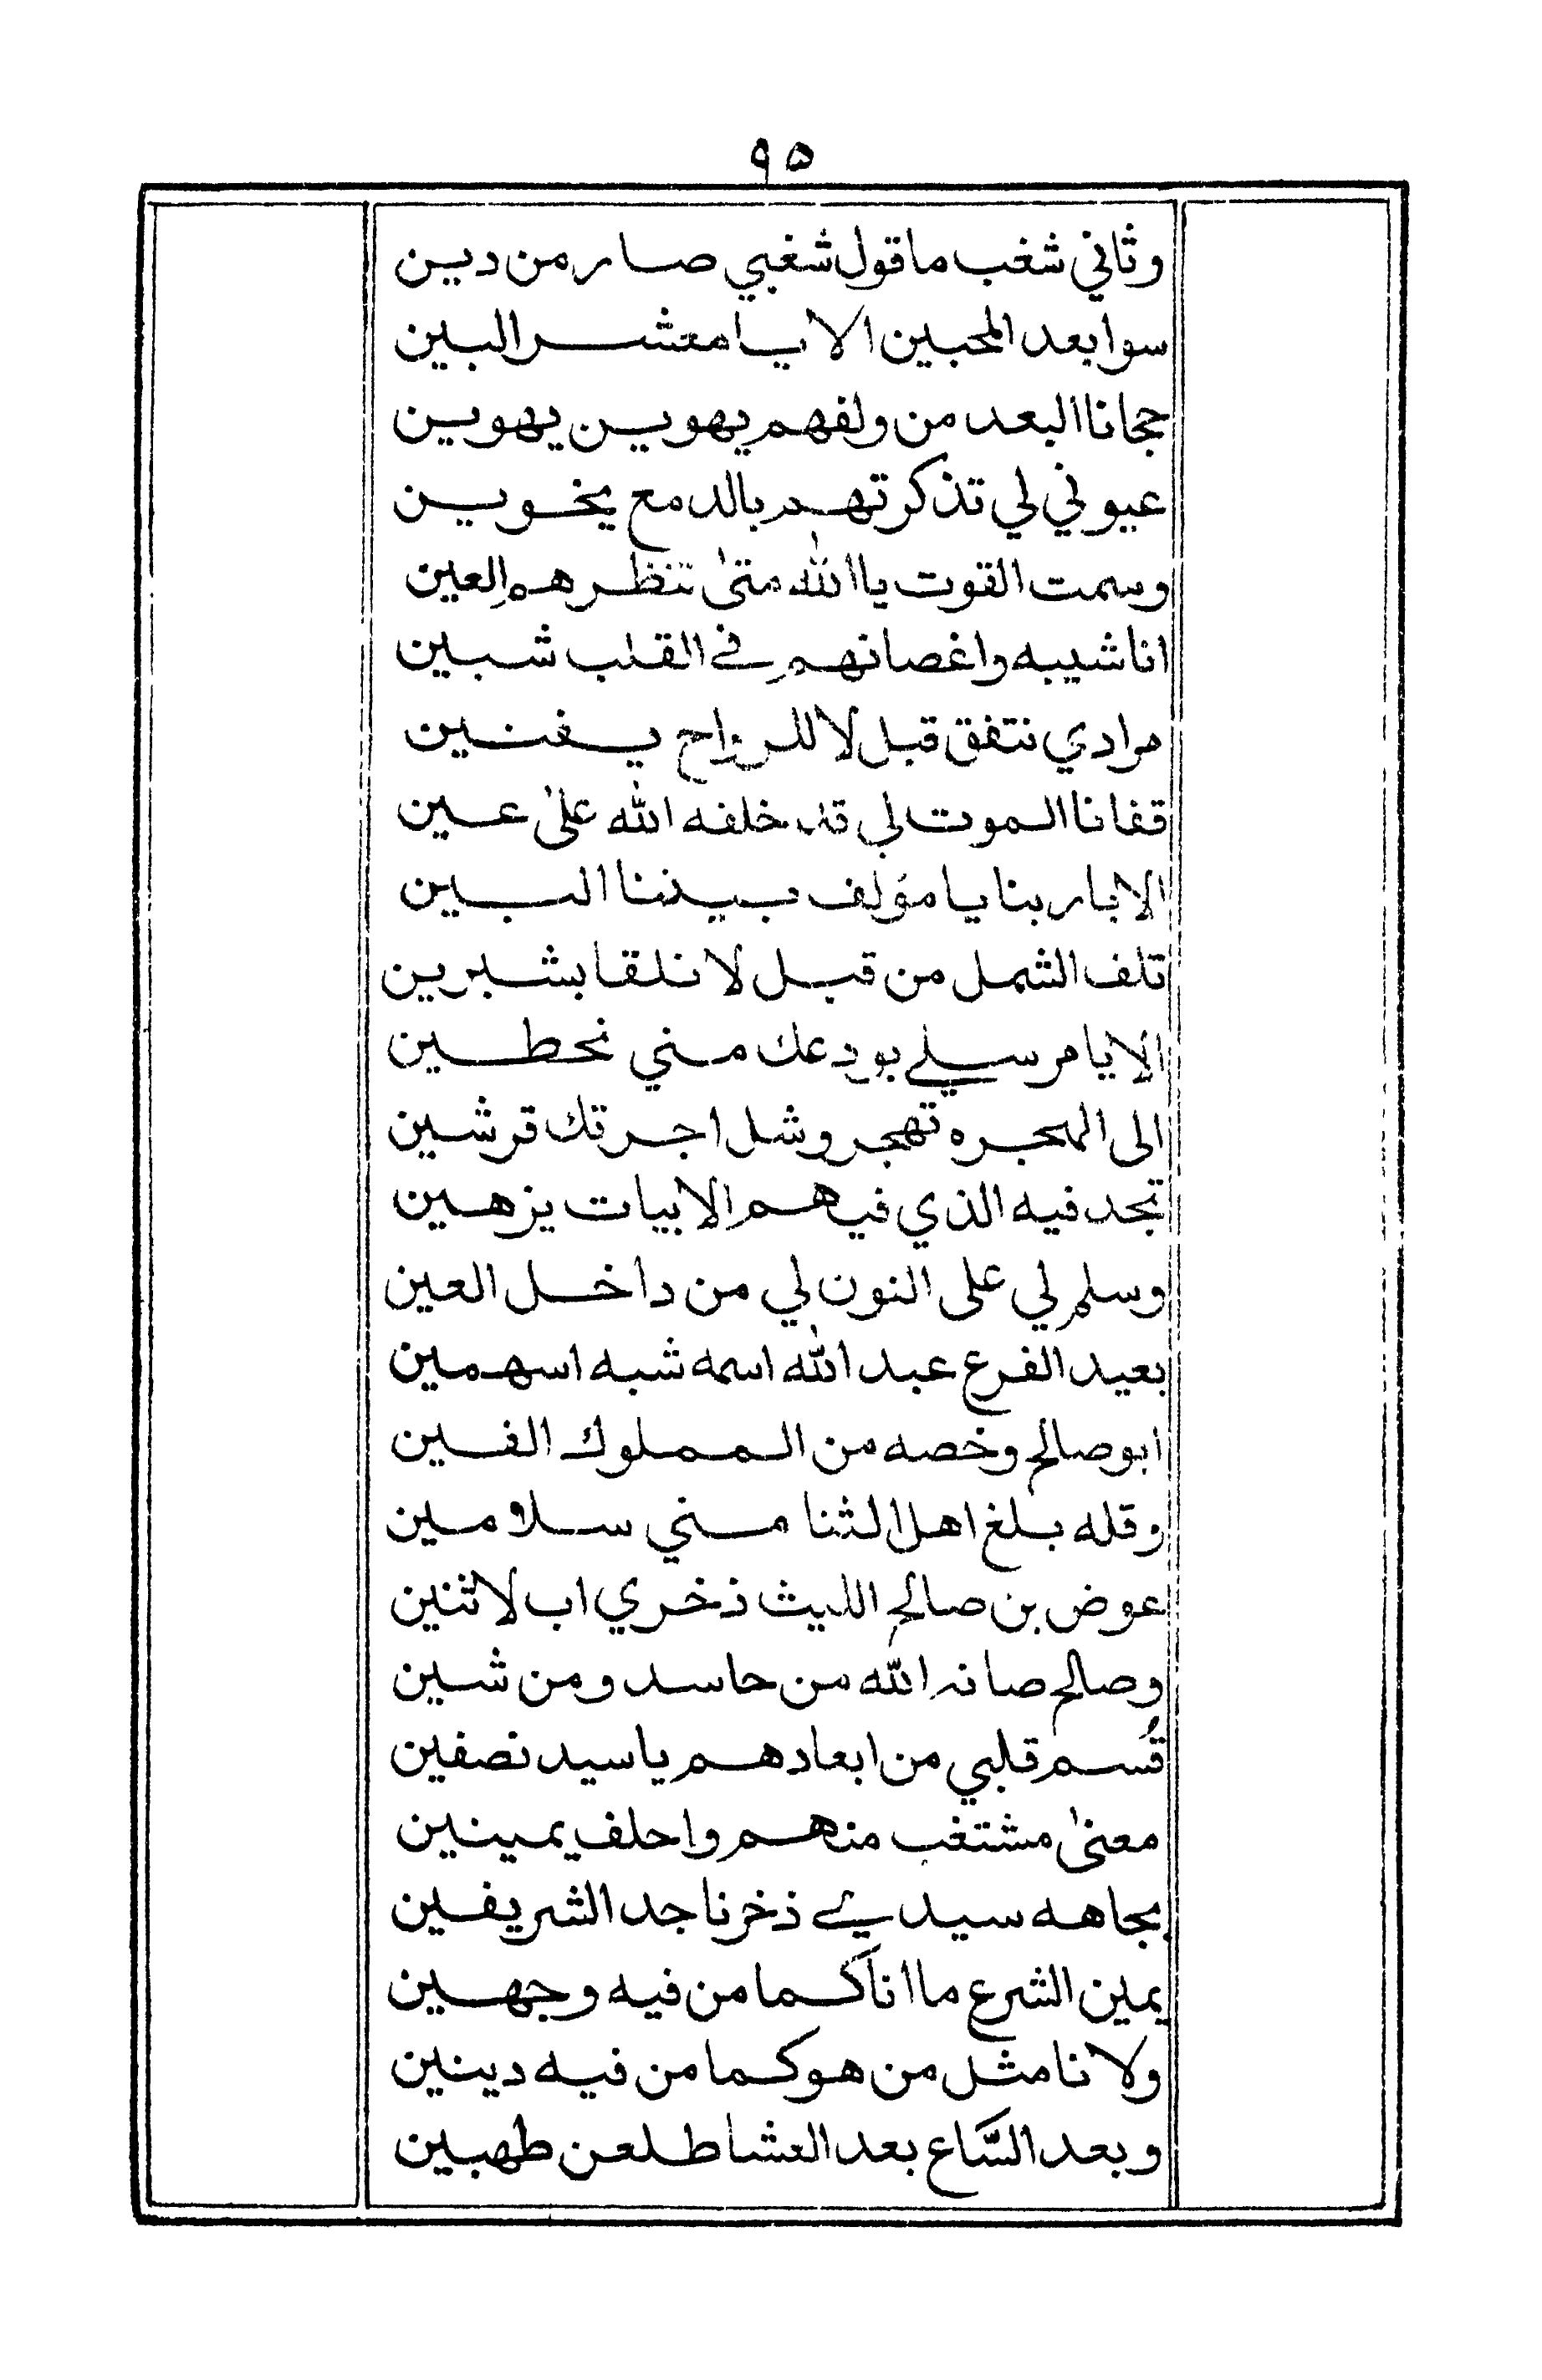 ٩٥
وثاني شغب ماقول شغبي صار من دين
سوا بعد المحبين الا يا معشر البين
جحانا البعد من ولفهم يهوين يهوين
عيوني لي تذكرتهم بالدمع يخوين
وسمت القوت يا الله متى تنظرهم العين
انا شيبه واغصانهم في القلب شبين
مرادي نتفق قبل لا للرزاح يفنين
قفانا الموت لي قد خلفه الله على عين
الا بار بنا يا مؤلف بيننا البين
تلف الشمل من قبل لا نلقا بشبرين
الا يا مرسلي بودعك مني نحطين
الى المحجره تهجر وشل اجرتك قرشين
تجد فيه الذي فيهم الابيات يزهين
وسلم لي على النون لي من داخل العين
بعيد الفرع عبد الله اسمه شبه اسهمين
ابو صالح وخصه من المملوك الفين
وقله بلغ اهل الثنا مني سلامين
عوض بن صالح الليث ذخري اب لاثنين
وصالح صانه الله من حاسد ومن شين
قُسم قلبي من ابعادهم يا سيد نصفين
معنى مشتغب منهم واحلف يمينين
بجاهه سيدي ذخرنا جد الشريفين
يمين الشرع ما انا كما من فيه وجهين
ولا نا مثل من هو كما من فيه دينين
وبعد السَّاع بعد العشا طلعن طهبين